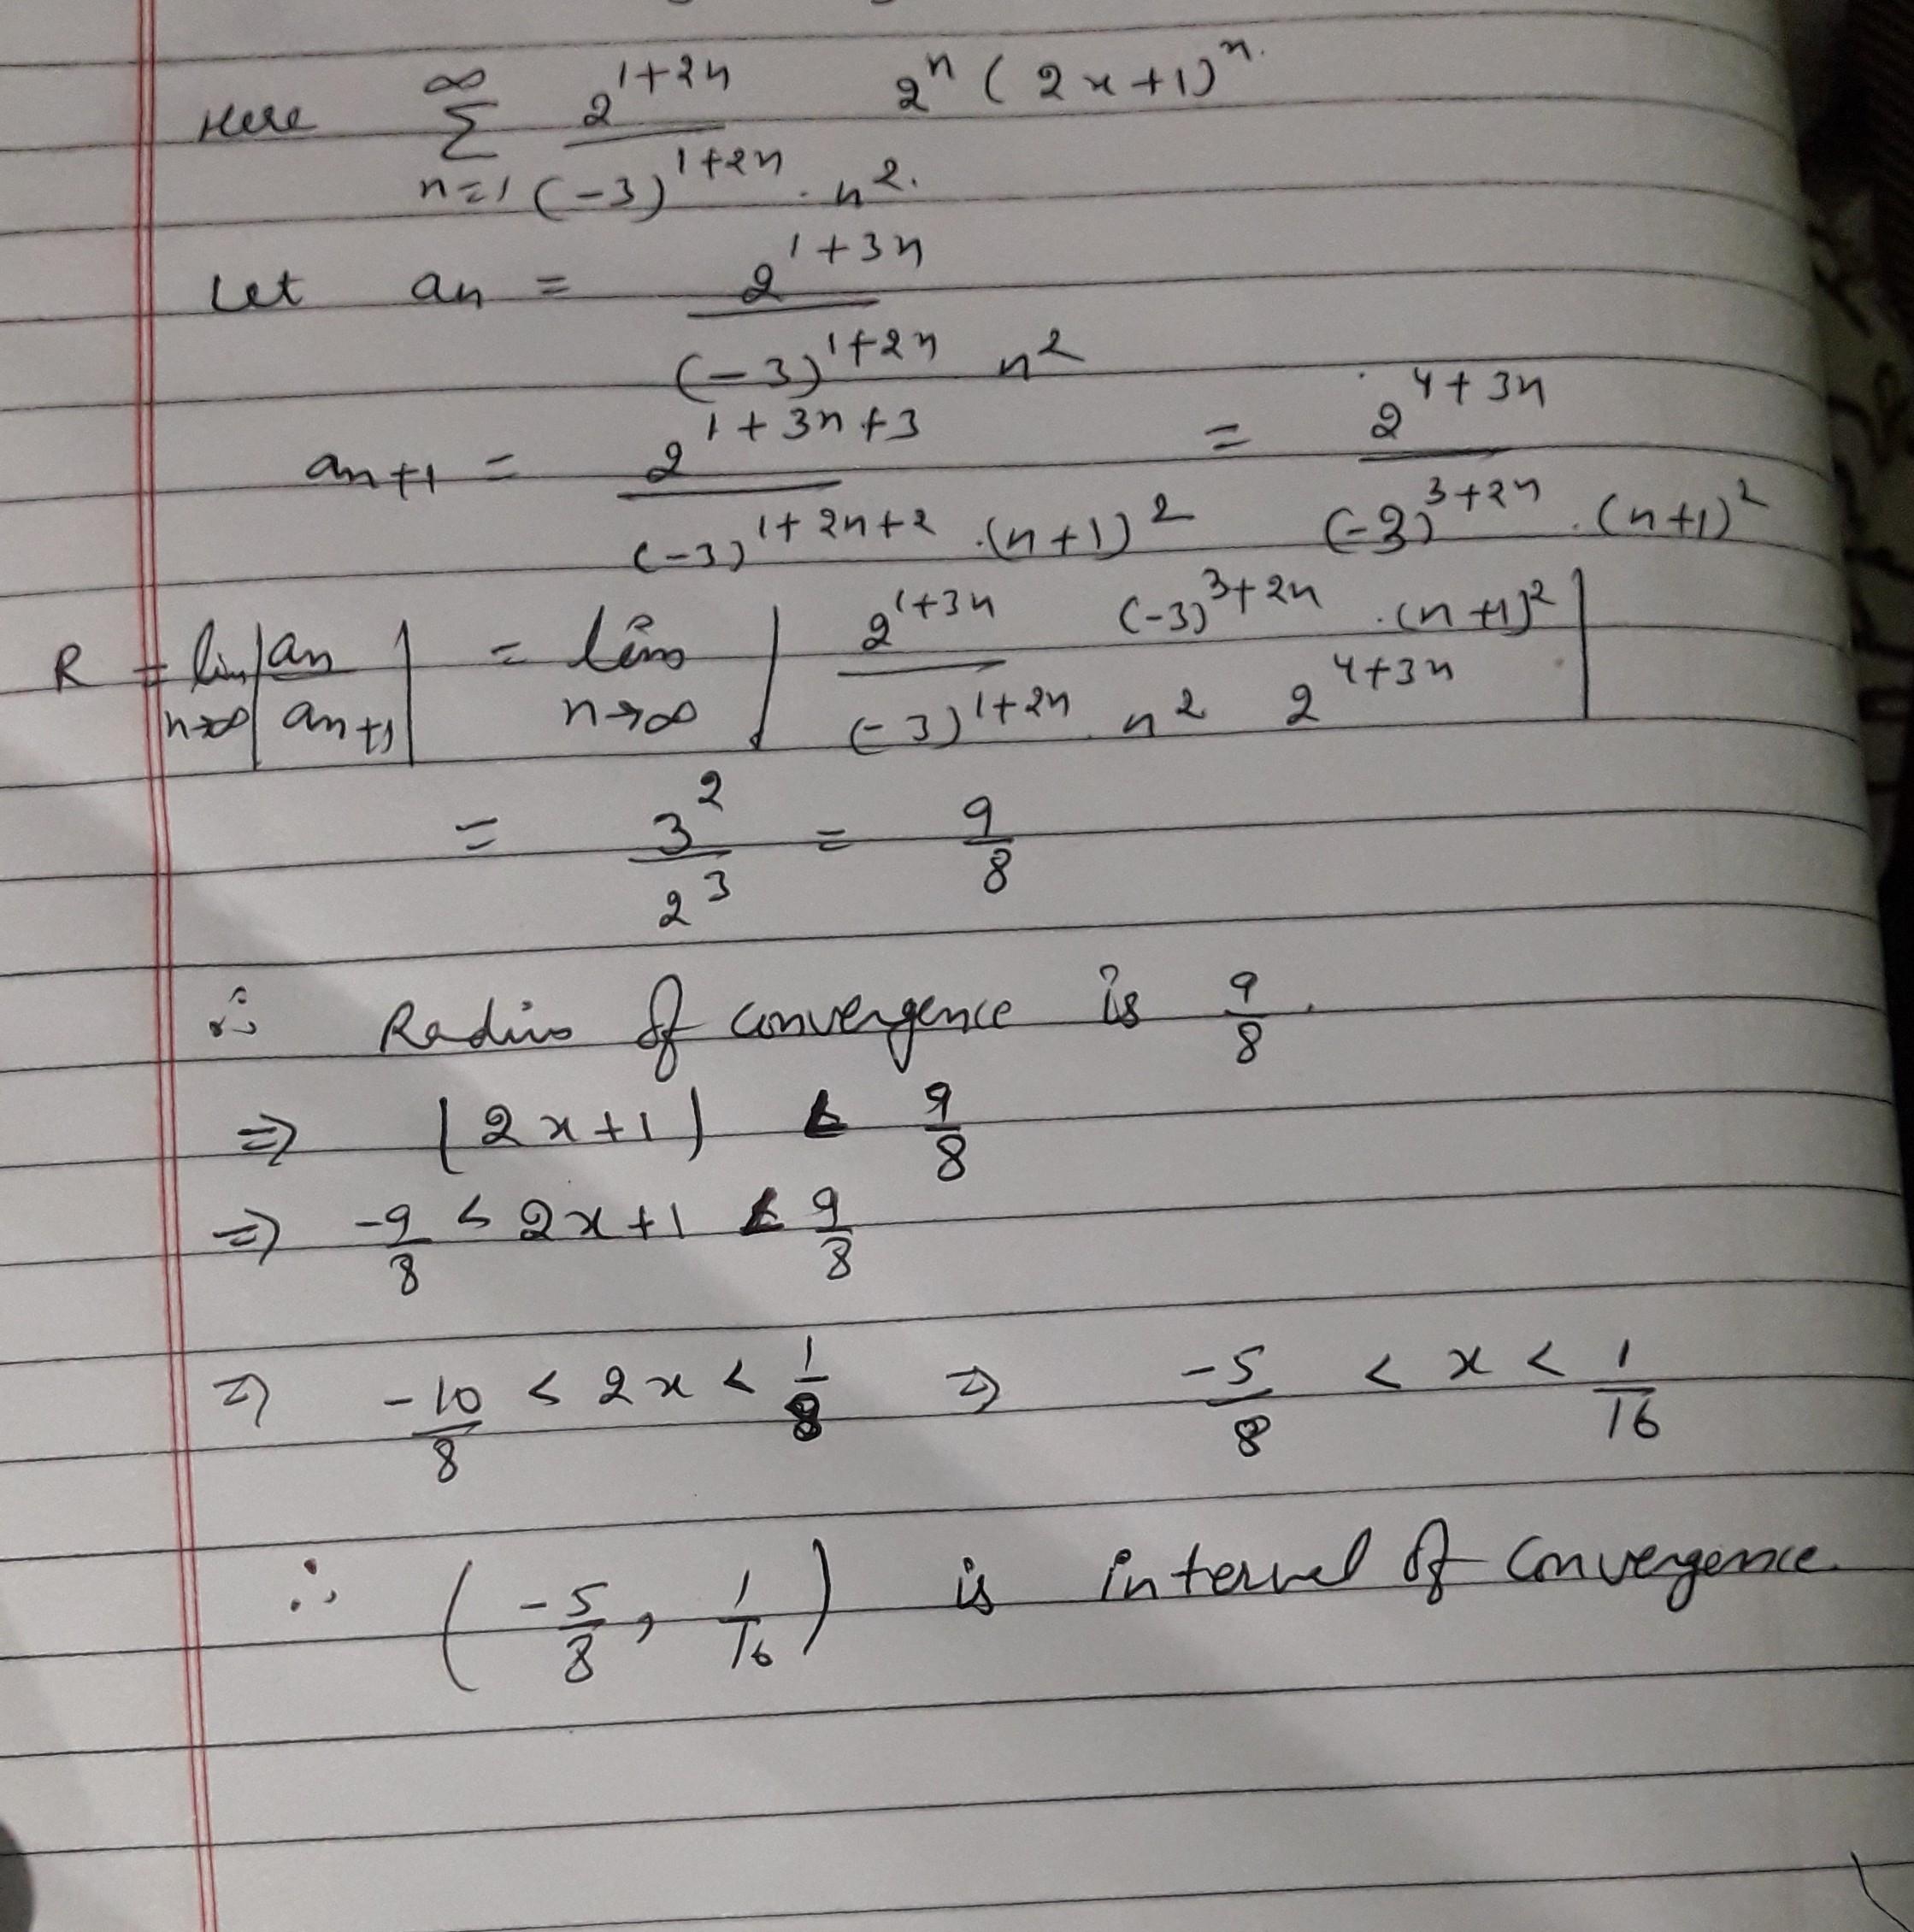 Here ∞ Σ n=1 2^{1+2n} / (-3)^{1+2n} · n^2. 2^n (2x+1)^n.
Let an = 2^{1+3n} / (-3)^{1+2n} n^2
an+1 = 2^{1+3n+3} / (-3)^{1+2n+2} · (n+1)^2 = 2^{4+3n} / (-3)^{3+2n} · (n+1)^2
R = lim n→∞ |an / an+1| = lim n→∞ | 2^{1+3n} (-3)^{3+2n} · (n+1)^2 / (-3)^{1+2n} n^2 2^{4+3n} |
= 3^2 / 2^3 = 9/8
∴ Radius of convergence is 9/8.
⇒ |2x+1| < 9/8
⇒ -9/8 < 2x+1 < 9/8
⇒ -10/8 < 2x < 1/8 ⇒ -5/8 < x < 1/16
∴ (-5/8, 1/16) is interval of convergence.